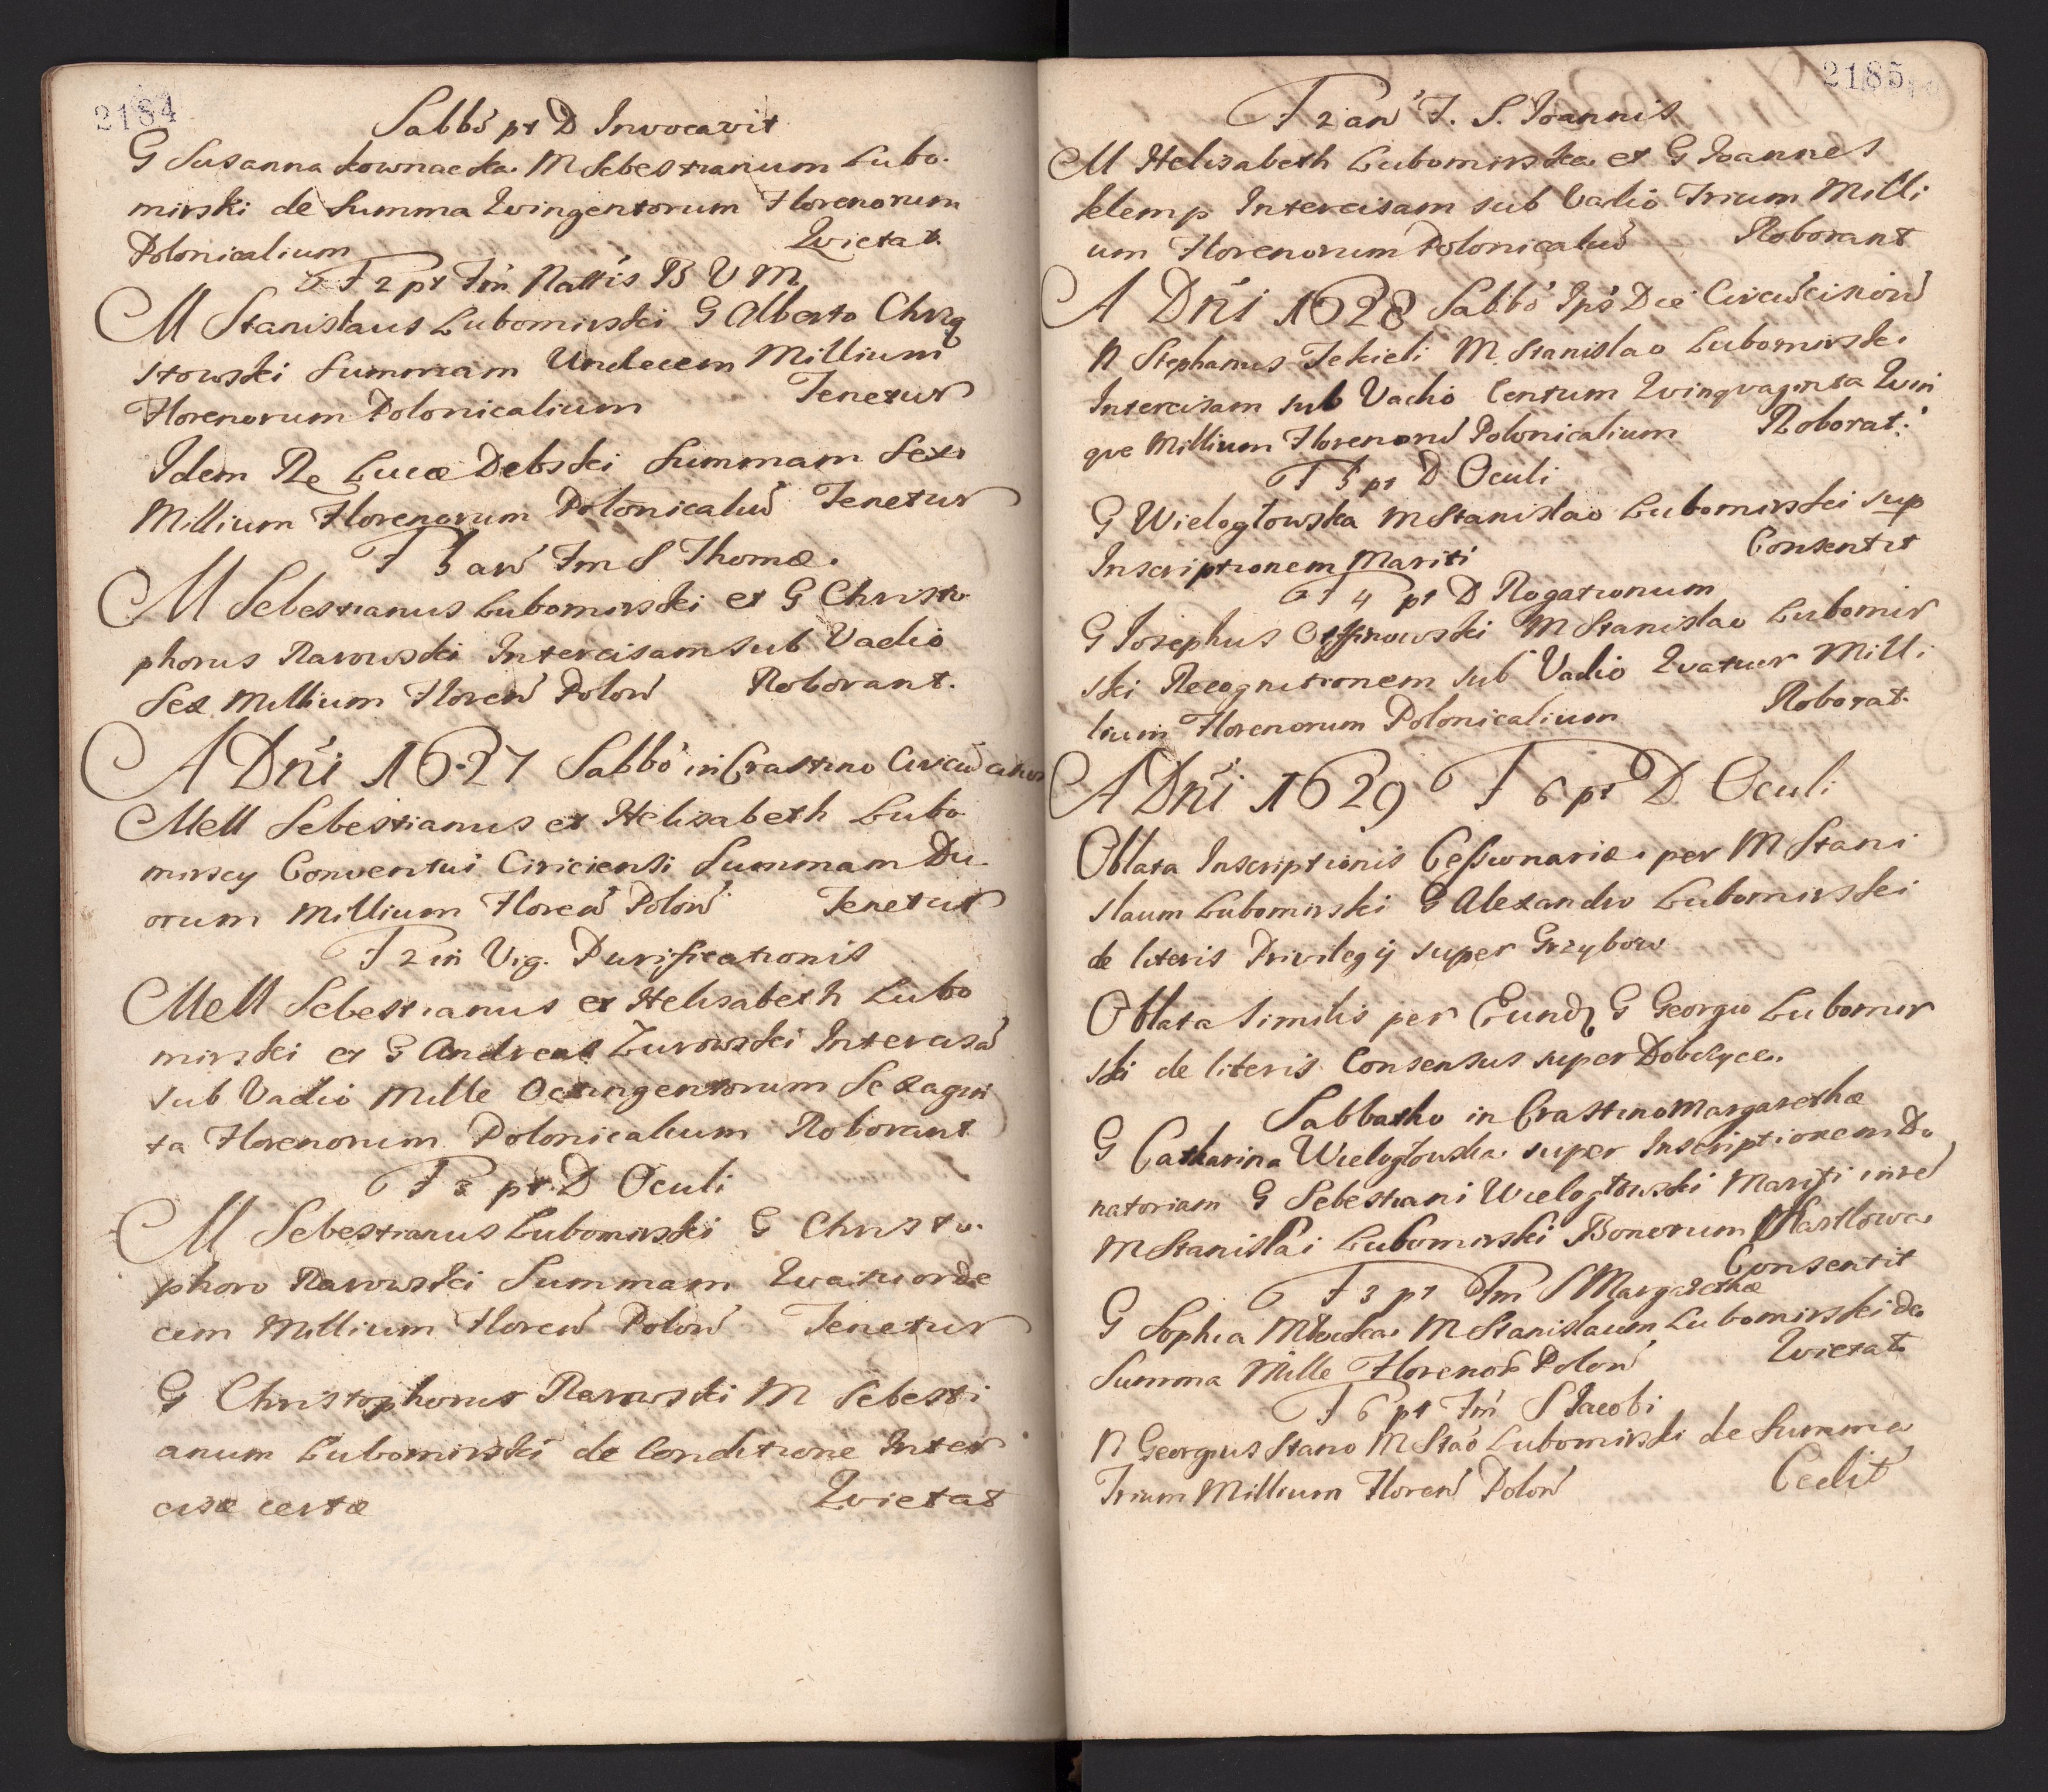 2184
Sabbo pt D Invocavit
G Susanna Łownacka M Sebestianum Lubo-
mirski de Summa Qvingentorum Florenorum
Polonicalium Qvietat.
F 2 pt Fm Nattis B V M
M Stanislaus Lubomirski G Alberto Chrzą
stowski Summam Undecem Millium
Florenorum Polonicalium Tenetur
Idem Re Lucæ Debski Summam Sex
Millium Florenorum Polonicaliu Tenetur
F 5 an Fm S Thomæ.
M Sebestianus Lubomirski et G Christo
phorus Rarowski Intercisam sub Vadio
Sex Millium Floren Polon Roborant.
A Dni 1627 Sabbo in Crastino
Mell Sebestianus et Helisabeth Lubo
mirscy Conventui Ciriciensi Summam Du-
orum Millium Floren Polon Tenetur
F 2 in Vig. Purificationis
Mell Sebestianus et Helisabeth Lubo
mirski et G Andreas Zurowski Intercisa
sub Vadio Mille Octingentorum Sexagin
ta Florenorum Polonicalium Roborant
F 3 pt D Oculi
M Sebestianus Lubomirski G Christo-
phoro Rarowski Summam Qvatuorde
cem Millium Floren Polon Tenetur
G Christophorus Rarowski M Sebesti
anum Lubomirski de Conditione Inter
cisæ certæ Qvietat
2185
F 2 an F. S. Ioannis
M Helisabeth Lubomirska et G Ioannes
Selemp Intercisam sub Vadio Trium Milli
um Florenorum Polonicaliu Roborant
A Dni 1628 Sabbo Ips Die Circucision
N Stephanus Tekieli M Stanislao Lubomirski
Intercisam sub Vadio Centum Qvinqvaginta Qvin
qve Millium Florenoru Polonicalium Roborat.
F 5 pt D Oculi
G Wielogłowska M Stanislao Lubomirski sup
Inscriptionem Mariti Consentit
F 4 pt D Rogationum
G Iosephus M Stanislao Lubomir
ski Recognitionem sub Vadio Qvatuor Mill:
lium Florenorum Polonicalium Roborat.
A Dni 1629 F 6 pt D. Oculi
Oblata Inscriptionis Cessionariæ per M Stani
slaum Lubomirski G Alexandro Lubomirski
de literis Privilegij super Grzybow
Oblata Similis per Eund G Georgio Lubomir
ski de literis Consensus super Dobczyce.
Sabbatho in Crastino Margarethæ
G Catharina Wielogłowska super Inscriptionem Do
natoriam G Sebestiani Wielogłowski Mariti
M Stanislai Lubomirski Bonorum Consentit
F 3 pt Fm S Margarethæ
G Sophia M Stanislaum Lubomirski de
Summa Mille Floreno Polon Qvietat
F 6 pt Fm S Iacobi
N Georgius Stano M Stao Lubomirski de Summa
Trium Millium Floren Polon Cedit